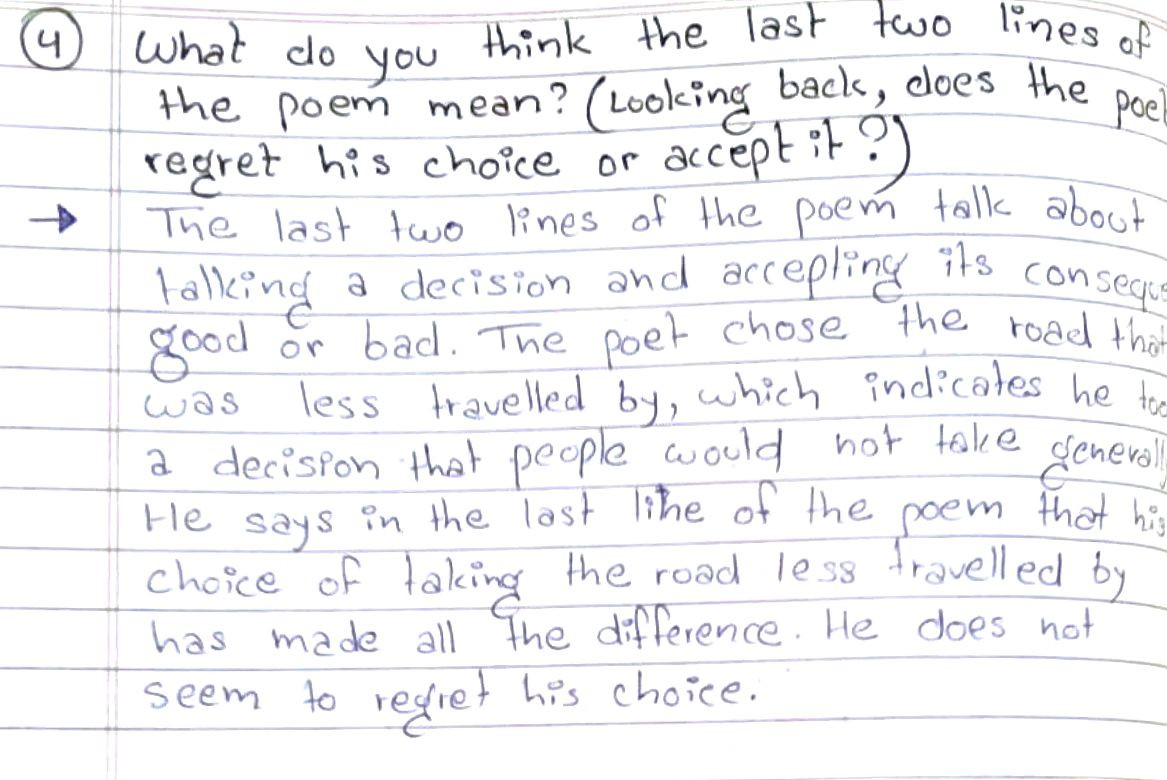 4 What do you think the last two lines of
the poem mean? (Looking back, does the poet
regret his choice or accept it?)
→ The last two lines of the poem talk about
talking a decision and accepting its conseque
good or bad. The poet chose the road that
was less travelled by, which indicates he too
a decision that people would not take generall
He says in the last line of the poem that his
choice of taking the road less travelled by
has made all the difference. He does not
seem to regret his choice.